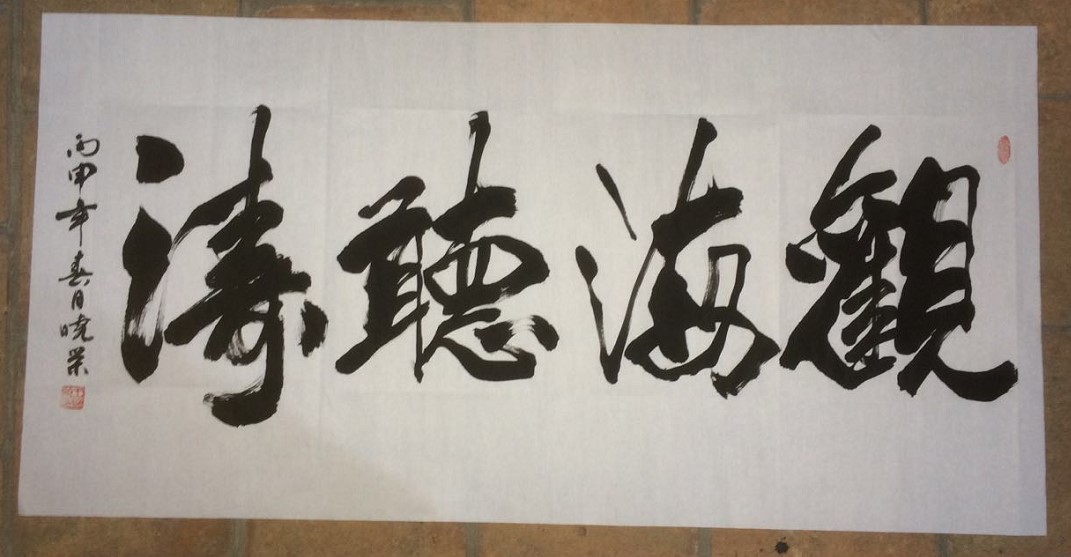 觀海聽濤
丙申年春月曉榮